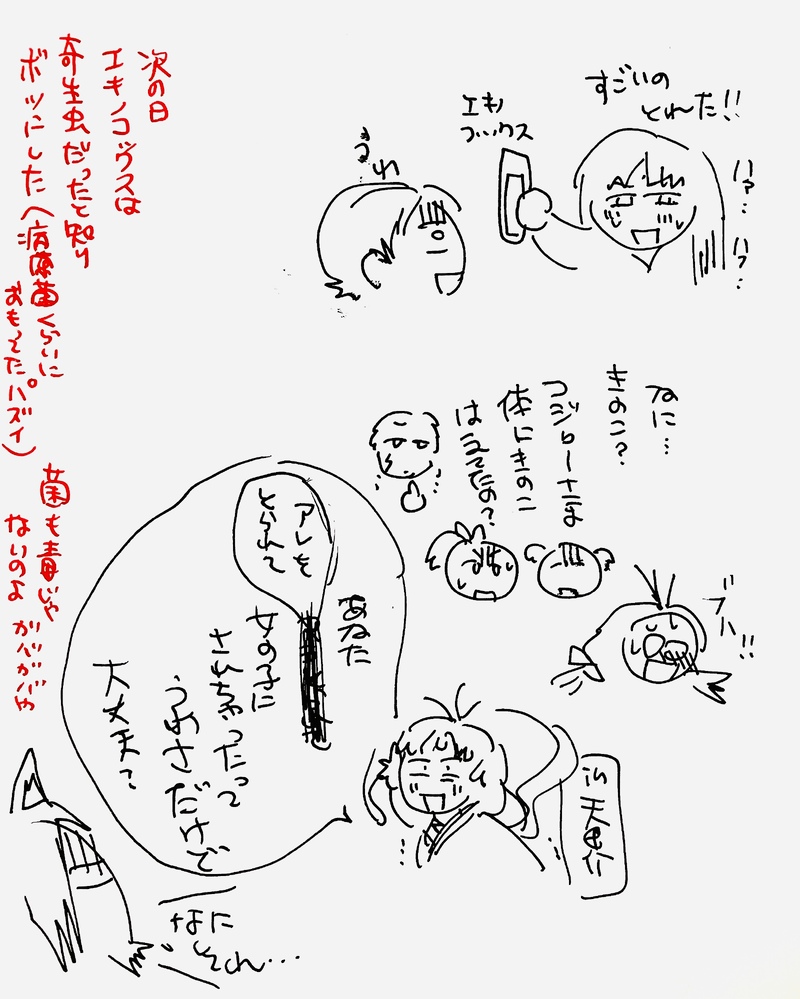 すごいの
とれた!!
ハァ…
ハァ…
エキノ
コックス
うわ
なに…
きのこ?
コジローさま
体にきのこ
はえてたの?
ブハ!!
in 天界
あなた
アレを
とられて
女の子に
されちゃったって
うわさだけで
大丈夫?
なに
それ…
次の日
エキノコックスは
寄生虫だったと知り
ボツにした(病原菌くらいに
おもってたハズイ)
菌も毒じゃ
ないのよ ガバガバゆ